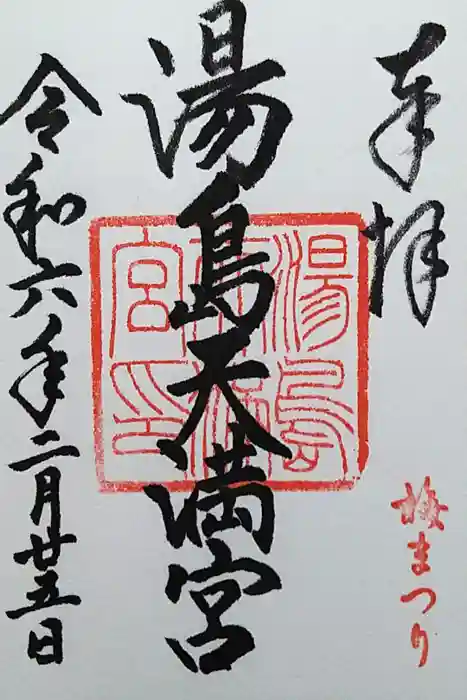 奉拝
梅まつり
湯島天満宮
湯島天満宮印
令和六年二月廿五日